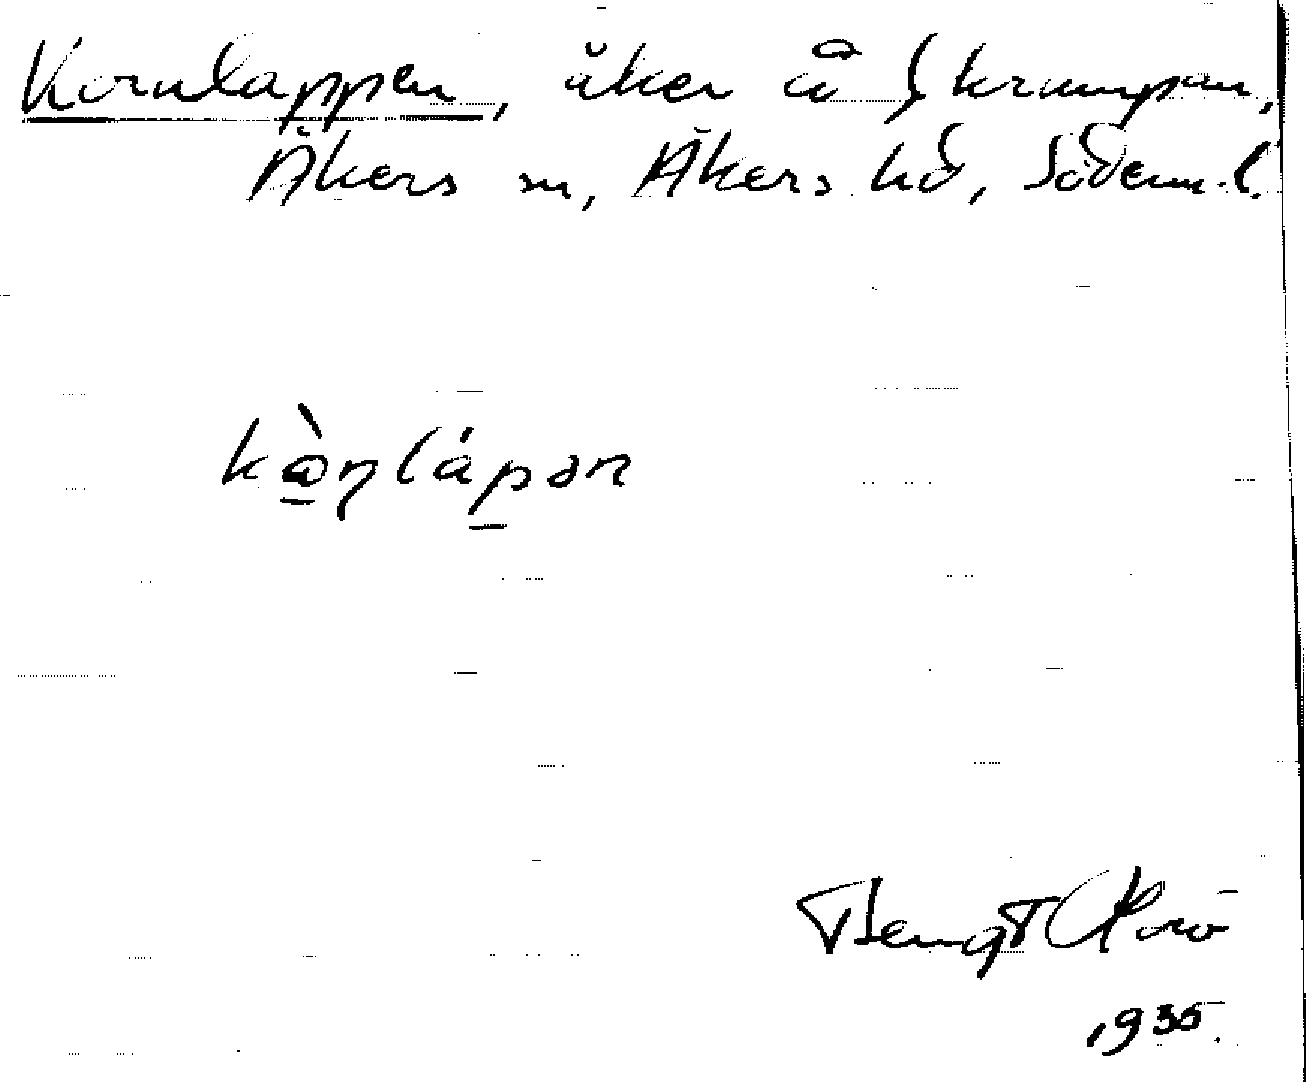 Kornlappen, åker å Skrumpan,
Åkers sn, Åkers hd, Söderm.l.
kȍηlápən
Bengt
1935.